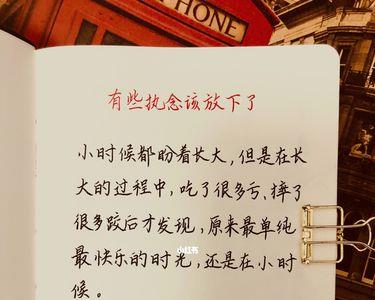 PHONE
有些执念该放下了
小时候都盼着长大，但是在长
大的过程中，吃了很多亏、摔了
很多跤后才发现，原来最单纯
最快乐的时光，还是在小时
候。
小红书